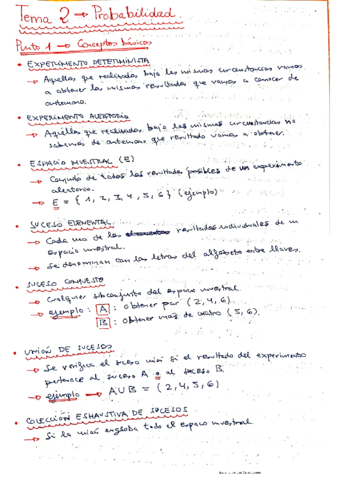 Tema 2 → Probabilidad.
Punto 1 → Conceptos básicos
• EXPERIMENTO DETERMINISTA
→ Aquellos que realizados bajo las mismas circunstancias vamos
a obtener los mismos resultados que vamos a conocer de
antemano.
• EXPERIMENTO ALEATORIO
→ Aquellos que realizados bajo las mismas circunstancias no
sabemos de antemano que resultado vamos a obtener.
• ESPACIO MUESTRAL (E)
→ Conjunto de todos los resultados posibles de un experimento
aleatorio.
→ E = { 1, 2, 3, 4, 5, 6 } (ejemplo)
• SUCESO ELEMENTAL
→ Cada uno de los resultados individuales de un
espacio muestral.
→ Se denominan con las letras del alfabeto entre llaves.
• SUCESO COMPUESTO
→ Cualquier subconjunto del espacio muestral.
→ ejemplo: A: Obtener par (2, 4, 6)
B: Obtener más de cuatro (5, 6)
• UNIÓN DE SUCESOS
→ Se verifica el suceso unión si el resultado del experimento
pertenece al suceso A o al suceso B.
→ ejemplo → A U B = (2, 4, 5, 6)
• COLECCIÓN EXHAUSTIVA DE SUCESOS
→ Si la unión engloba todo el espacio muestral.